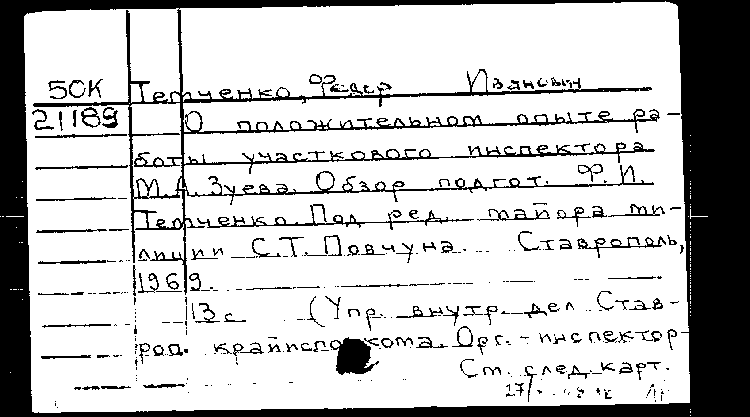 50К Тетченко, Федор Иванович
21189 О положительном опыте ра-
боты участкового инспектора
М.А. Зуева. Обзор подгот. Ф.И.
Тетченко. Под ред. майора ми-
лиции С.Т. Повчуна. Ставрополь,
1969.
13с (Упр. внутр. дел Став-
роп. крайисполкома. Орг.-инспектор-
См. след. карт.